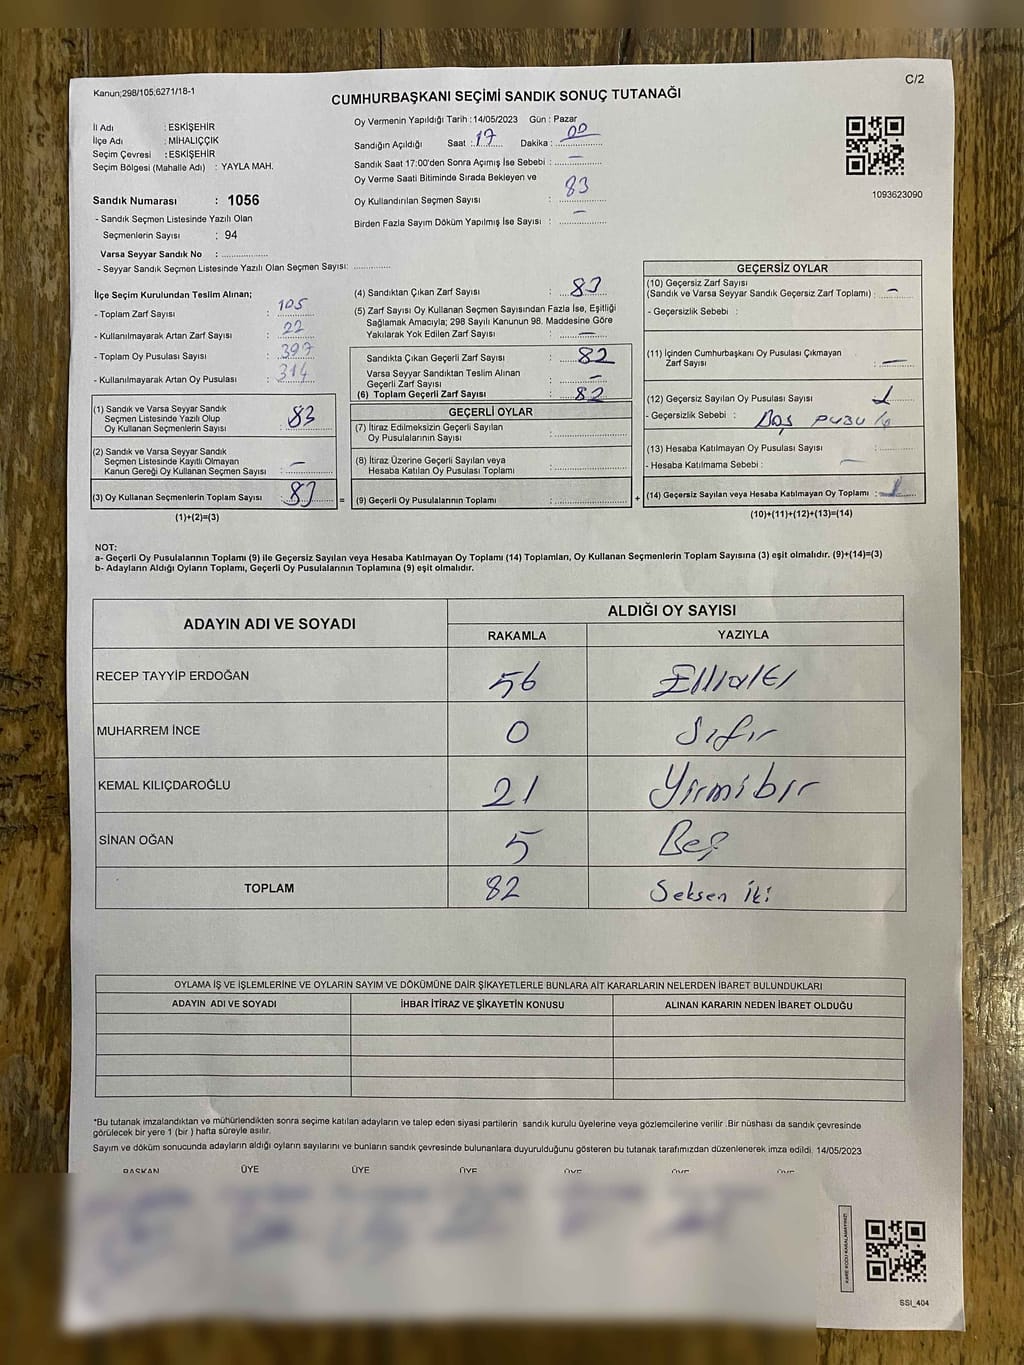 Kanun;298/105;6271/18-1
C/2
CUMHURBAŞKANI SEÇİMİ SANDIK SONUÇ TUTANAĞI
İl Adı : ESKİŞEHİR
İlçe Adı : MİHALIÇÇIK
Seçim Çevresi : ESKİŞEHİR
Seçim Bölgesi (Mahalle Adı) : YAYLA MAH.
Oy Vermenin Yapıldığı Tarih : 14/05/2023 Gün : Pazar
Sandığın Açıldığı Saat : 17 Dakika : 00
Sandık Saat 17:00'den Sonra Açımış İse Sebebi : –
Oy Verme Saati Bitiminde Sırada Bekleyen ve
Oy Kullandırılan Seçmen Sayısı : 83
Birden Fazla Sayım Döküm Yapılmış İse Sayısı : –
1093623090
Sandık Numarası : 1056
- Sandık Seçmen Listesinde Yazılı Olan
Seçmenlerin Sayısı : 94
Varsa Seyyar Sandık No : ....................
- Seyyar Sandık Seçmen Listesinde Yazılı Olan Seçmen Sayısı: ...............
İlçe Seçim Kurulundan Teslim Alınan;
- Toplam Zarf Sayısı : 105
- Kullanılmayarak Artan Zarf Sayısı : 22
- Toplam Oy Pusulası Sayısı : 397
- Kullanılmayarak Artan Oy Pusulası : 314
(1) Sandık ve Varsa Seyyar Sandık
Seçmen Listesinde Yazılı Olup
Oy Kullanan Seçmenlerin Sayısı : 83
(2) Sandık ve Varsa Seyyar Sandık
Seçmen Listesinde Kayıtlı Olmayan
Kanun Gereği Oy Kullanan Seçmen Sayısı : –
(3) Oy Kullanan Seçmenlerin Toplam Sayısı : 83 =
(1)+(2)=(3)
(4) Sandıktan Çıkan Zarf Sayısı : 83
(5) Zarf Sayısı Oy Kullanan Seçmen Sayısından Fazla İse, Eşitliği
Sağlamak Amacıyla; 298 Sayılı Kanunun 98. Maddesine Göre
Yakılarak Yok Edilen Zarf Sayısı : –
Sandıkta Çıkan Geçerli Zarf Sayısı : 82
Varsa Seyyar Sandıktan Teslim Alınan
Geçerli Zarf Sayısı : –
(6) Toplam Geçerli Zarf Sayısı : 82
GEÇERLİ OYLAR
(7) İtiraz Edilmeksizin Geçerli Sayılan
Oy Pusulalarının Sayısı : ....................
(8) İtiraz Üzerine Geçerli Sayılan veya
Hesaba Katılan Oy Pusulası Toplamı : ....................
(9) Geçerli Oy Pusulalarının Toplamı : .................... +
GEÇERSİZ OYLAR
(10) Geçersiz Zarf Sayısı
(Sandık ve Varsa Seyyar Sandık Geçersiz Zarf Toplamı) : –
- Geçersizlik Sebebi :
(11) İçinden Cumhurbaşkanı Oy Pusulası Çıkmayan
Zarf Sayısı : –
(12) Geçersiz Sayılan Oy Pusulası Sayısı : 1
- Geçersizlik Sebebi : Boş
(13) Hesaba Katılmayan Oy Pusulası Sayısı :
- Hesaba Katılmama Sebebi : –
(14) Geçersiz Sayılan veya Hesaba Katılmayan Oy Toplamı : 1
(10)+(11)+(12)+(13)=(14)
NOT:
a- Geçerli Oy Pusulalarının Toplamı (9) ile Geçersiz Sayılan veya Hesaba Katılmayan Oy Toplamı (14) Toplamları, Oy Kullanan Seçmenlerin Toplam Sayısına (3) eşit olmalıdır. (9)+(14)=(3)
b- Adayların Aldığı Oyların Toplamı, Geçerli Oy Pusulalarının Toplamına (9) eşit olmalıdır.
ADAYIN ADI VE SOYADI
ALDIĞI OY SAYISI
RAKAMLA YAZIYLA
RECEP TAYYİP ERDOĞAN 56 Ellialtı
MUHARREM İNCE 0 Sıfır
KEMAL KILIÇDAROĞLU 21 Yirmibir
SİNAN OĞAN 5 Beş
TOPLAM 82 Seksen İki
OYLAMA İŞ VE İŞLEMLERİNE VE OYLARIN SAYIM VE DÖKÜMÜNE DAİR ŞİKAYETLERLE BUNLARA AİT KARARLARIN NELERDEN İBARET BULUNDUKLARI
ADAYIN ADI VE SOYADI İHBAR İTİRAZ VE ŞİKAYETİN KONUSU ALINAN KARARIN NEDEN İBARET OLDUĞU
*Bu tutanak imzalandıktan ve mühürlendikten sonra seçime katılan adayların ve talep eden siyasi partilerin sandık kurulu üyelerine veya gözlemcilerine verilir .Bir nüshası da sandık çevresinde
görülecek bir yere 1 (bir ) hafta süreyle asılır.
Sayım ve döküm sonucunda adayların aldığı oyların sayılarını ve bunların sandık çevresinde bulunanlara duyurulduğunu gösteren bu tutanak tarafımızdan düzenlenerek imza edildi. 14/05/2023
BAŞKAN ÜYE ÜYE ÜYE ÜYE ÜYE ÜYE
KARE KODU KARALAMAYINIZ!
SSI_404